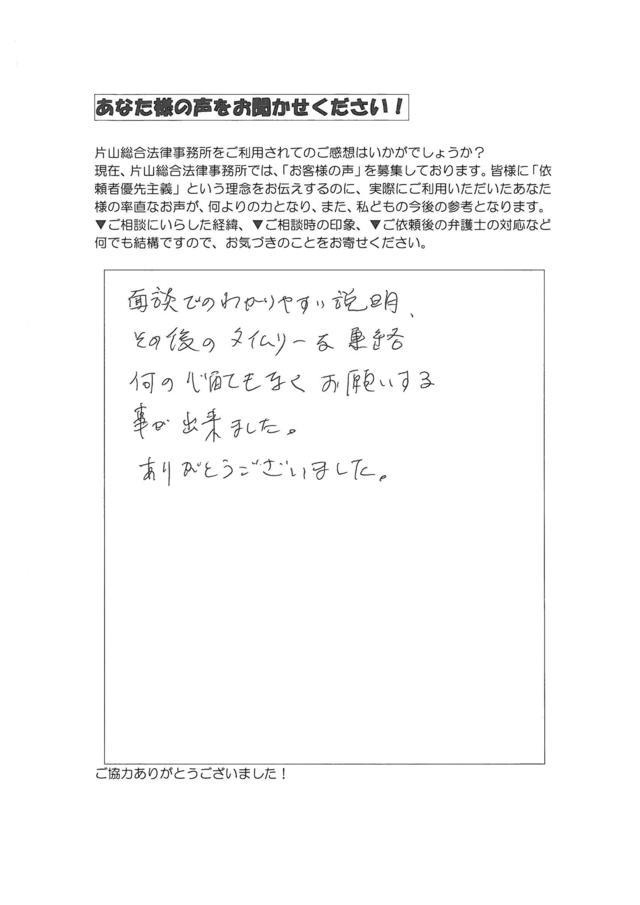 あなた様の声をお聞かせください！
片山総合法律事務所をご利用されてのご感想はいかがでしょうか？
現在、片山総合法律事務所では、「お客様の声」を募集しております。皆様に「依
頼者優先主義」という理念をお伝えするのに、実際にご利用いただいたあなた
様の率直なお声が、何よりの力となり、また、私どもの今後の参考となります。
▼ご相談にいらした経緯、▼ご相談時の印象、▼ご依頼後の弁護士の対応など
何でも結構ですので、お気づきのことをお寄せください。
面談でのわかりやすい説明、
その後のタイムリーな連絡
何の心配もなくお願いする
事が出来ました。
ありがとうございました。
ご協力ありがとうございました！